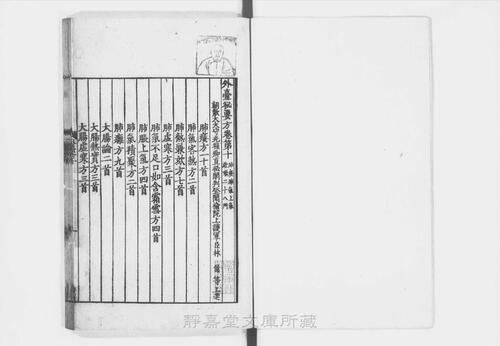 外臺祕要方卷第十 肺痿肺氣上氣
欬嗽二十八門
朝散大夫守光祿卿直祕閣判登聞檢院上護軍臣林億等上進
肺痿方一十首
肺氣客熱方二首
肺熱兼欬方七首
肺虛寒方三首
肺氣不足口如含霜雪方四首
肺脹上氣方四首
肺氣積聚方二首
肺癰方九首
大腸論二首
大腸熱實方三首
大腸虛寒方三首
靜嘉堂文庫所藏